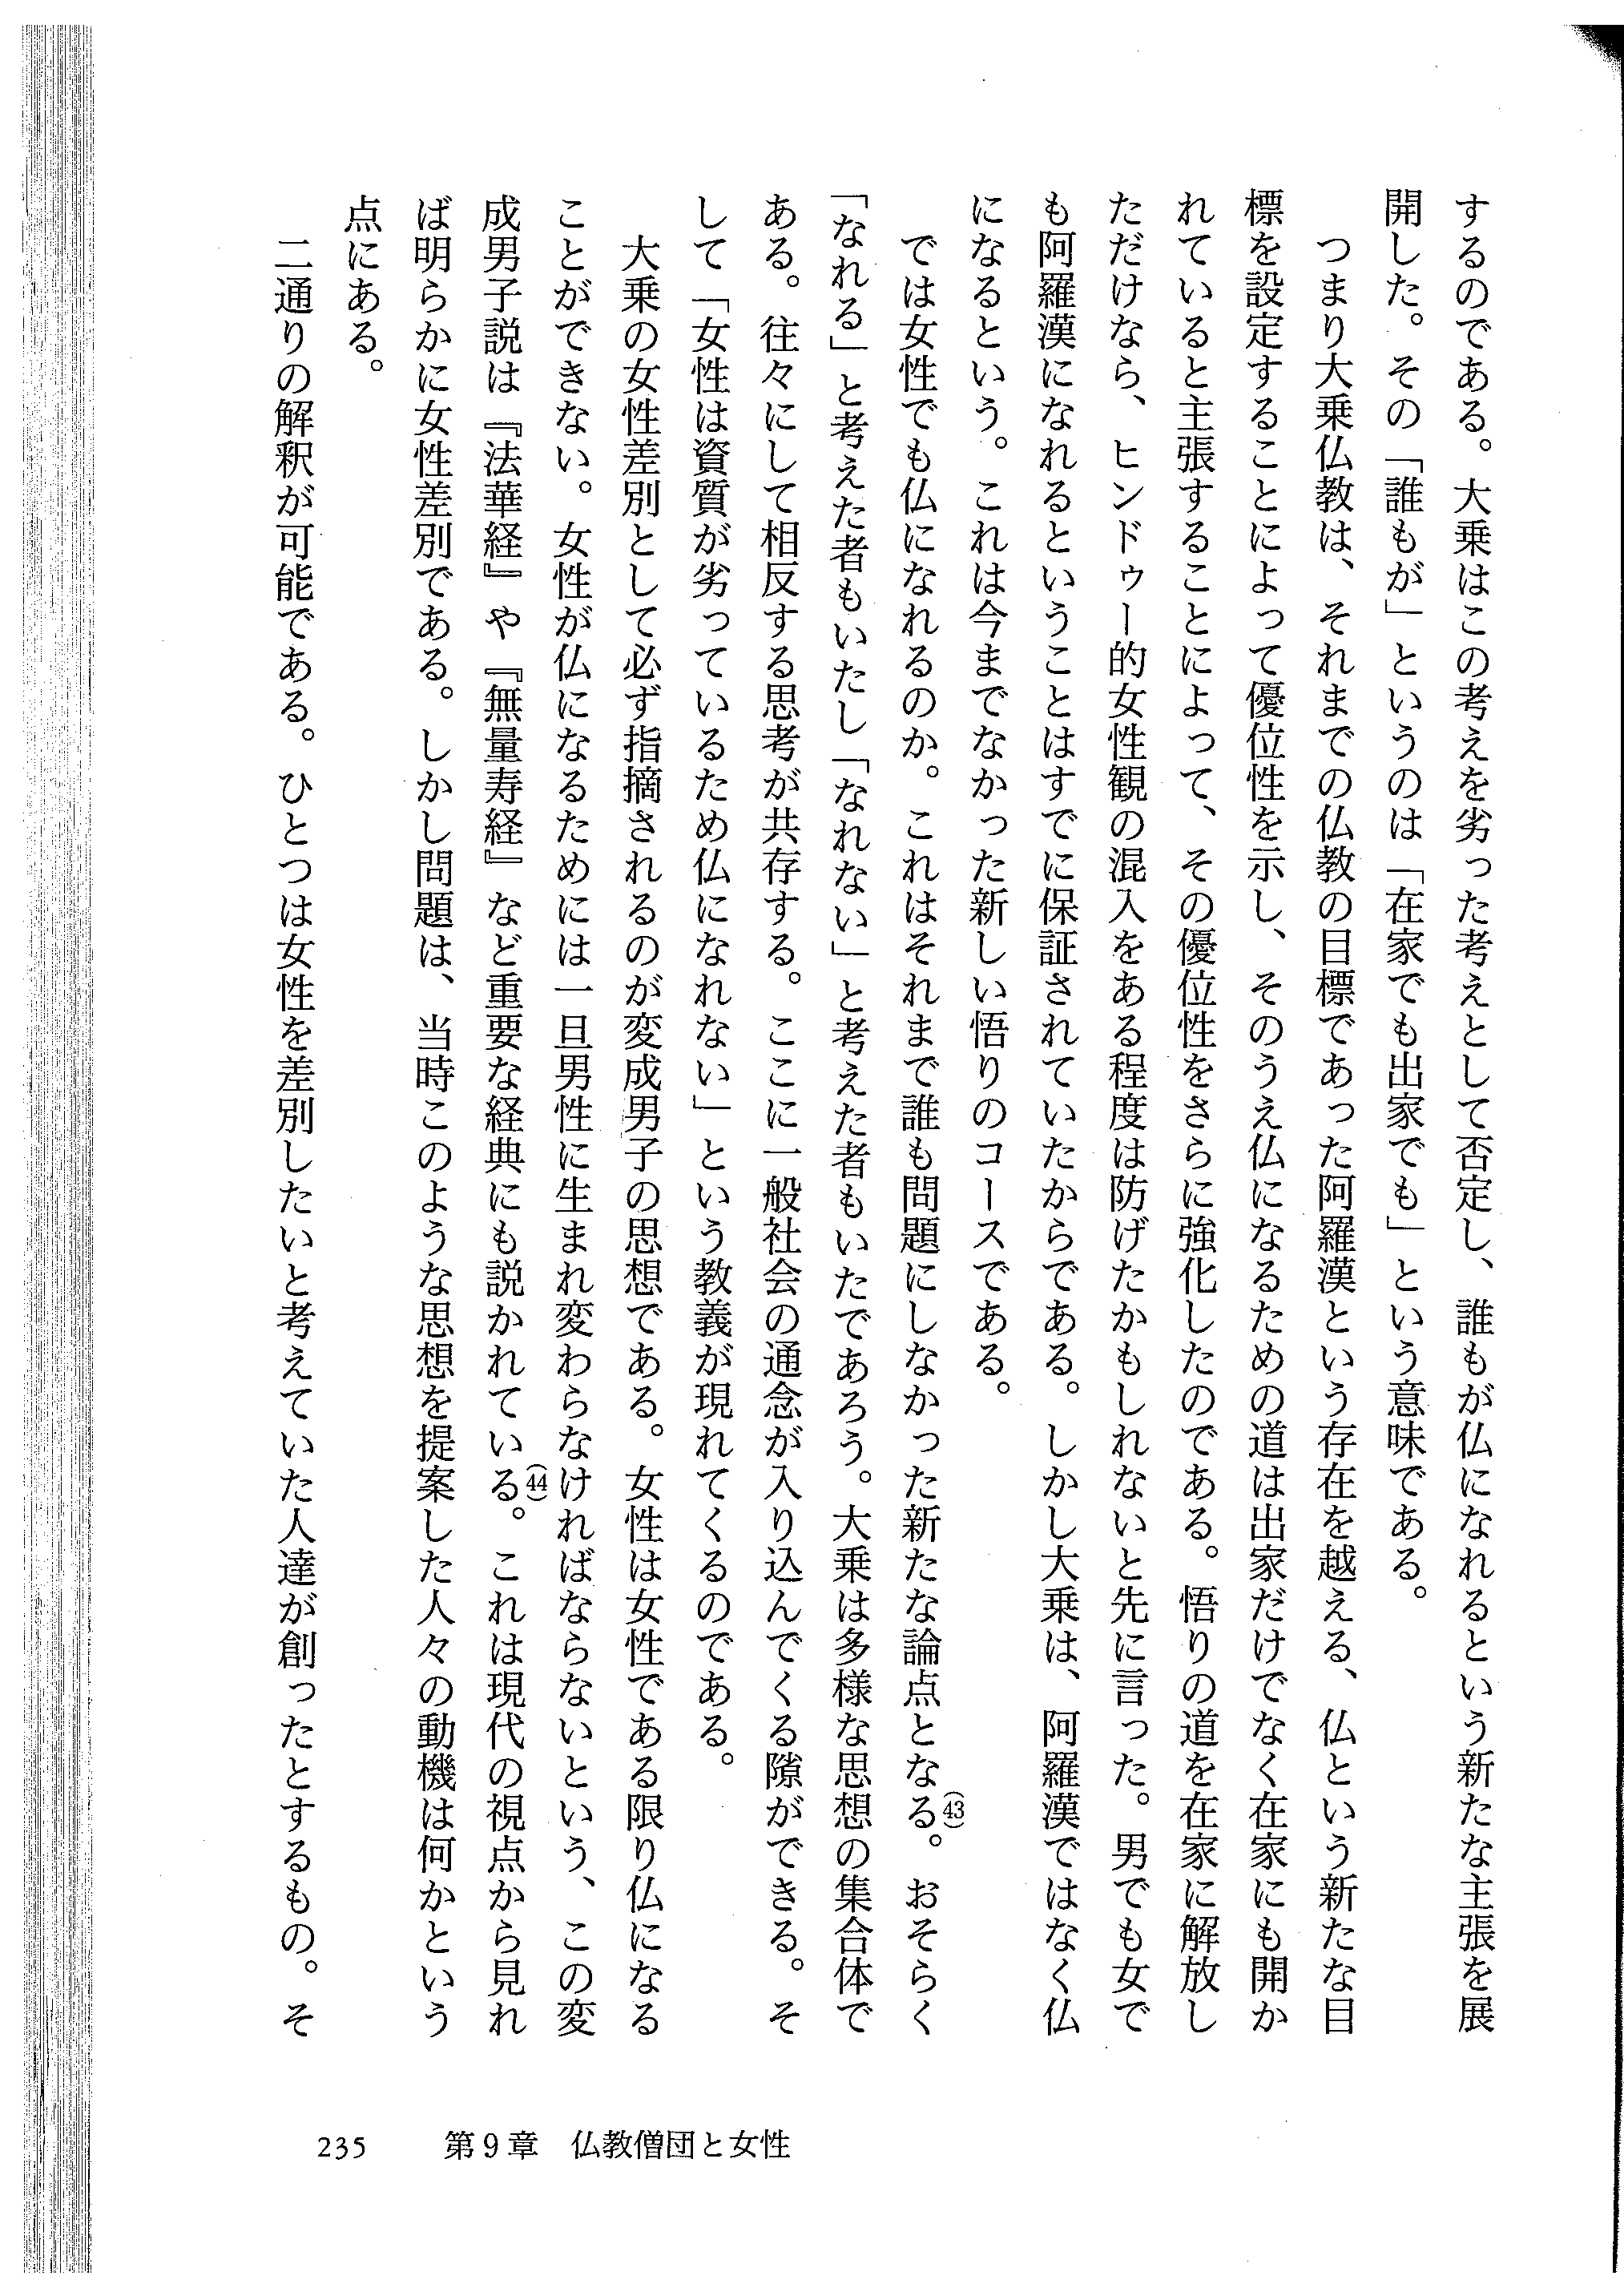 するのである。大乗はこの考えを劣った考えとして否定し、誰もが仏になれるという新たな主張を展
開した。その「誰もが」というのは「在家でも出家でも」という意味である。
つまり大乗仏教は、それまでの仏教の目標であった阿羅漢という存在を越える、仏という新たな目
標を設定することによって優位性を示し、そのうえ仏になるための道は出家だけでなく在家にも開か
れていると主張することによって、その優位性をさらに強化したのである。悟りの道を在家に解放し
ただけなら、ヒンドゥー的女性観の混入をある程度は防げたかもしれないと先に言った。男でも女で
も阿羅漢になれるということはすでに保証されていたからである。しかし大乗は、阿羅漢ではなく仏
になるという。これは今までなかった新しい悟りのコースである。
では女性でも仏になれるのか。これはそれまで誰も問題にしなかった新たな論点となる(43)。おそらく
「なれる」と考えた者もいたし「なれない」と考えた者もいたであろう。大乗は多様な思想の集合体で
ある。往々にして相反する思考が共存する。ここに一般社会の通念が入り込んでくる隙ができる。そ
して「女性は資質が劣っているため仏になれない」という教義が現れてくるのである。
大乗の女性差別として必ず指摘されるのが変成男子の思想である。女性は女性である限り仏になる
ことができない。女性が仏になるためには一旦男性に生まれ変わらなければならないという、この変
成男子説は『法華経』や『無量寿経』など重要な経典にも説かれている(44)。これは現代の視点から見れ
ば明らかに女性差別である。しかし問題は、当時このような思想を提案した人々の動機は何かという
点にある。
二通りの解釈が可能である。ひとつは女性を差別したいと考えていた人達が創ったとするもの。そ
235 第9章 仏教僧団と女性